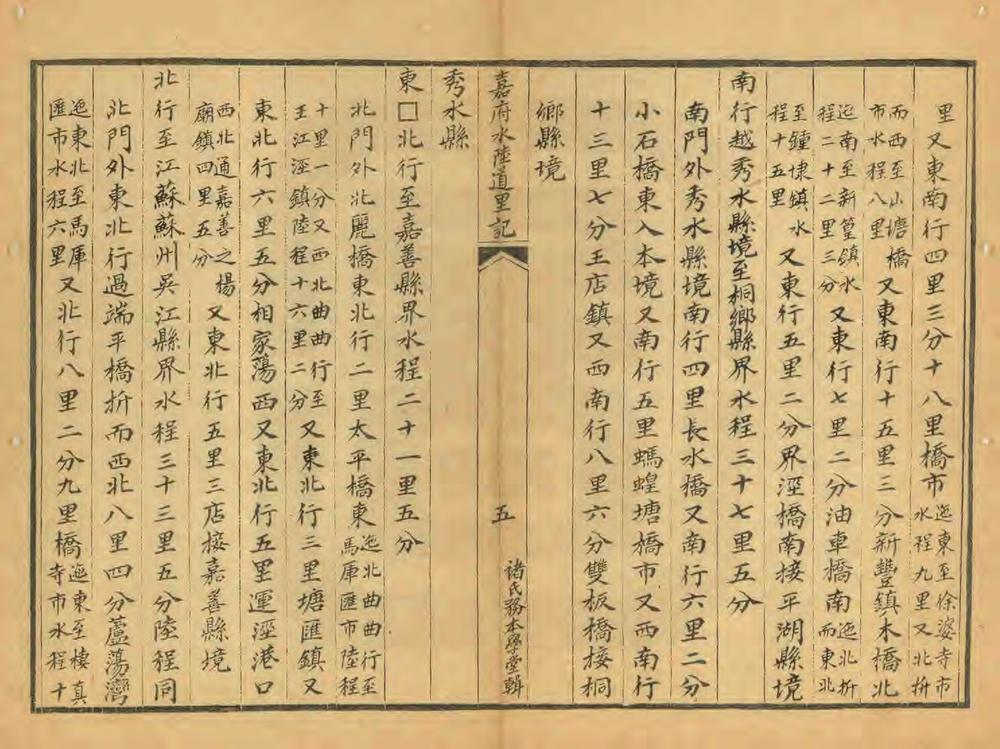 里又東南行四里三分十八里橋市迤東至徐婆寺市水程九里又北折
而西至山塘橋市水程八里又東南行十五里三分新豐鎮木橋北
迤南至新篁鎮水程二十二里三分又東行七里二分油車橋南迤北折而東北
至鍾埭鎮水程十五里又東行五里二分界涇橋南接平湖縣境
南行越秀水縣境至桐鄉縣界水程三十七里五分
南門外秀水縣境南行四里長水橋又南行六里二分
小石橋東入本境又南行五里螞蝗塘橋市又西南行
十三里七分王店鎮又西南行八里六分雙板橋接桐
鄉縣境
嘉府水陸道里記
五
諸氏務本學堂輯
秀水縣
東□北行至嘉善縣界水程二十一里五分
北門外北麗橋東北行二里太平橋東迤北曲曲行至馬厙匯市陸程
十里一分又西北曲曲行至王江涇鎮陸程十六里二分又東北行三里塘匯鎮又
東北行六里五分相家蕩西又東北行五里運涇港口
西北通嘉善之楊廟鎮四里五分又東北行五里三店接嘉善縣境
北行至江蘇蘇州吳江縣界水程三十三里五分陸程同
北門外東北行過端平橋折而西北八里四分蘆蕩灣
迤東北至馬厙匯市水程六里又北行八里二分九里橋迤東至棲真寺市水程十